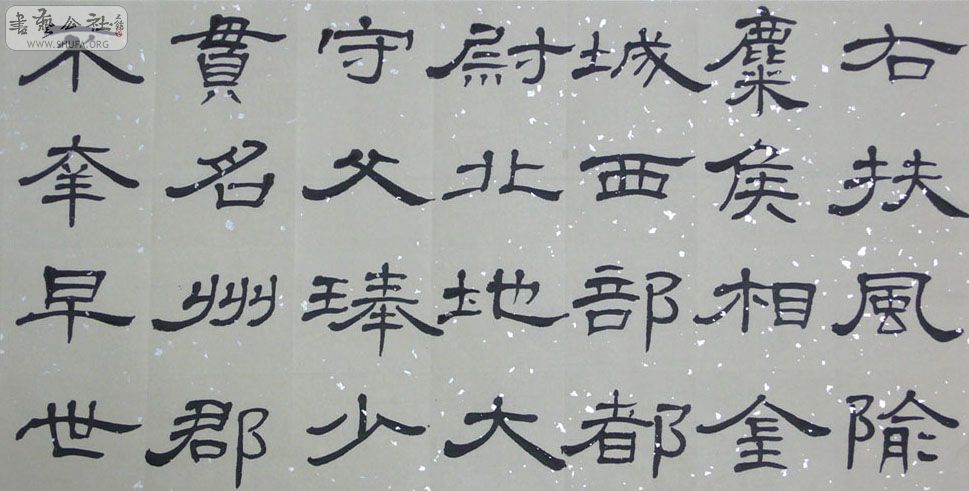 右扶風隃
麋侯相金
城西部都
尉北地大
守父琫少
貫名州郡
不幸早世
書藝公社
WWW.SHUFA.ORG